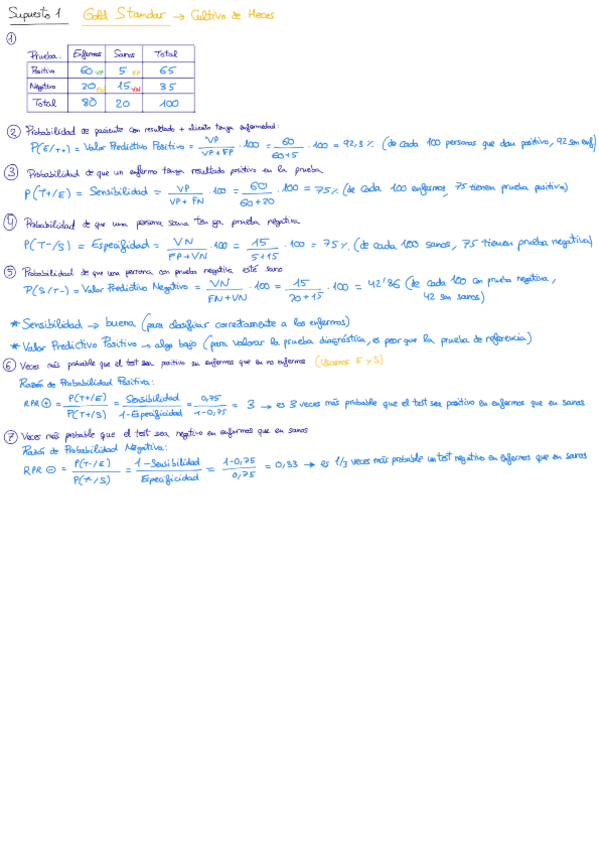 Supuesto 1 Gold Standar → Cultivo de Heces
①
Prueba Enfermos Sanos Total
Positivo 60 VP 5 FP 65
Negativo 20 FN 15 VN 35
Total 80 20 100
② Probabilidad de paciente con resultado + alicato tenga enfermedad:
P(E/T+) = Valor Predictivo Positivo = VP / VP + FP · 100 = 60 / 60+5 · 100 = 92,3 % (de cada 100 personas que dan positivo, 92 son enf)
③ Probabilidad de que un enfermo tenga resultado positivo en la prueba
P(T+/E) = Sensibilidad = VP / VP + FN · 100 = 60 / 60+20 · 100 = 75 % (de cada 100 enfermos, 75 tienen prueba positiva)
④ Probabilidad de que una persona sana tenga prueba negativa
P(T-/S) = Especifidad = VN / FP + VN · 100 = 15 / 5+15 · 100 = 75 % (de cada 100 sanos, 75 tienen prueba negativa)
⑤ Probabilidad de que una persona con prueba negativa esté sano
P(S/T-) = Valor Predictivo Negativo = VN / FN + VN · 100 = 15 / 20+15 · 100 = 42'86 (de cada 100 con prueba negativa,
42 son sanos)
* Sensibilidad → buena (para clasificar correctamente a los enfermos)
* Valor Predictivo Positivo → algo bajo (para valorar la prueba diagnóstica, es peor que la prueba de referencia)
⑥ Veces más probable que el test sea positivo en enfermos que en no enfermos (Usamos E y S)
Razón de Probabilidad Positiva:
RPR ⊕ = P(T+/E) / P(T+/S) = Sensibilidad / 1-Especificidad = 0,75 / 1-0,75 = 3 → es 3 veces más probable que el test sea positivo en enfermos que en sanos
⑦ Veces más probable que el test sea negativo en enfermos que en sanos
Razón de Probabilidad Negativa:
RPR ⊖ = P(T-/E) / P(T-/S) = 1-Sensibilidad / Especificidad = 1-0,75 / 0,75 = 0,33 → es 1/3 veces más probable un test negativo en enfermos que en sanos